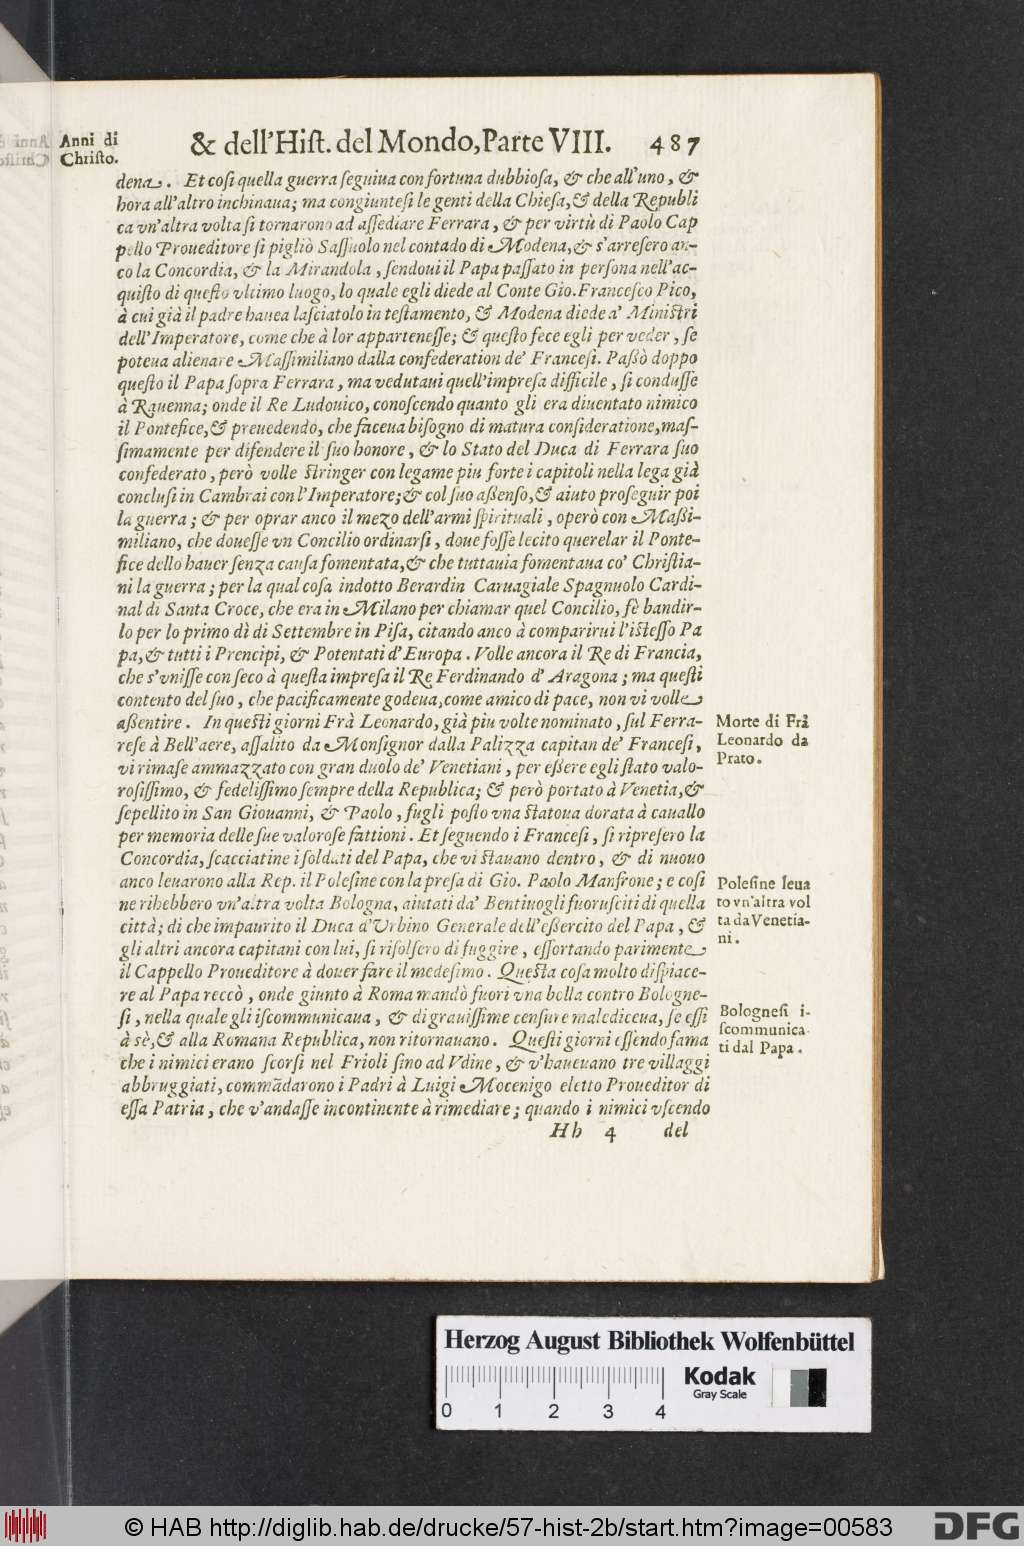 Anni di
Christo.
& dell'Hiſt. del Mondo, Parte VIII. 487
dena. Et coſi quella guerra ſeguiua con fortuna dubbioſa, & che all'uno, &
hora all'altro inchinaua; ma congiunteſi le genti della Chieſa, & della Republi
ca vn'altra volta ſi tornarono ad aſſediare Ferrara, & per virtù di Paolo Cap
pello Proueditore ſi pigliò Saſſuolo nel contado di Modena, & s'arreſero an-
co la Concordia, & la Mirandola, ſendoui il Papa paſſato in perſona nell'ac-
quiſto di queſto vltimo luogo, lo quale egli diede al Conte Gio. Franceſco Pico,
à cui già il padre hauea laſciatolo in teſtamento, & Modena diede a' Miniſtri
dell'Imperatore, come che à lor apparteneſſe; & queſto fece egli per veder, ſe
poteua alienare Maſſimiliano dalla confederation de' Franceſi. Paßò doppo
queſto il Papa ſopra Ferrara, ma vedutaui quell'impreſa difficile, ſi conduſſe
à Rauenna; onde il Re Ludouico, conoſcendo quanto gli era diuentato nimico
il Pontefice, & preuedendo, che faceua biſogno di matura conſideratione, maſ-
ſimamente per difendere il ſuo honore, & lo Stato del Duca di Ferrara ſuo
confederato, però volle ſtringer con legame piu forte i capitoli nella lega già
concluſi in Cambrai con l'Imperatore; & col ſuo aßenſo, & aiuto proſeguir poi
la guerra; & per oprar anco il mezo dell'armi ſpirituali, operò con Maßi-
miliano, che doueſſe vn Concilio ordinarſi, doue foſſe lecito querelar il Ponte-
fice dello hauer ſenza cauſa fomentata, & che tuttauia fomentaua co' Chriſtia-
ni la guerra; per la qual coſa indotto Berardin Caruagiale Spagnuolo Cardi-
nal di Santa Croce, che era in Milano per chiamar quel Concilio, fè bandir-
lo per lo primo dì di Settembre in Piſa, citando anco à comparirui l'iſteſſo Pa
pa, & tutti i Prencipi, & Potentati d'Europa. Volle ancora il Re di Francia,
che s'vniſſe con ſeco à queſta impreſa il Re Ferdinando d'Aragona; ma queſti
contento del ſuo, che pacificamente godeua, come amico di pace, non vi volle
aßentire. In queſti giorni Frà Leonardo, già piu volte nominato, ſul Ferra-
reſe à Bell'aere, aſſalito da Monſignor dalla Palizza capitan de' Franceſi,
vi rimaſe ammazzato con gran duolo de' Venetiani, per eßere egli ſtato valo-
roſiſſimo, & fedeliſſimo ſempre della Republica; & però portato à Venetia, &
ſepellito in San Giouanni, & Paolo, fugli poſto vna ſtatoua dorata à cauallo
per memoria delle ſue valoroſe fattioni. Et ſeguendo i Franceſi, ſi ripreſero la
Concordia, ſcacciatine i ſoldati del Papa, che vi ſtauano dentro, & di nuouo
anco leuarono alla Rep. il Poleſine con la preſa di Gio. Paolo Manfrone; e coſi
ne rihebbero vn'altra volta Bologna, aiutati da' Bentiuogli fuoruſciti di quella
città; di che impaurito il Duca d'Vrbino Generale dell'eßercito del Papa, &
gli altri ancora capitani con lui, ſi riſolſero di fuggire, eſſortando parimente
il Cappello Proueditore à douer fare il medeſimo. Queſta coſa molto diſpiace-
re al Papa reccò, onde giunto à Roma mandò fuori vna bolla contro Bologne-
ſi, nella quale gli iſcommunicaua, & di grauiſſime cenſure malediceua, ſe eſſi
à sè, & alla Romana Republica, non ritornauano. Queſti giorni eſſendo fama
che i nimici erano ſcorſi nel Frioli ſino ad Vdine, & v'haueuano tre villaggi
abbruggiati, commãdarono i Padri à Luigi Mocenigo eletto Proueditor di
eſſa Patria, che v'andaſſe incontinente à rimediare; quando i nimici vſcendo
Hh 4 del
Morte di Frà
Leonardo da
Prato.
Poleſine leua
to vn'altra vol
ta da Venetia-
ni.
Bologneſi i-
ſcommunica
ti dal Papa.
Herzog August Bibliothek Wolfenbüttel
Kodak
Gray Scale
0 1 2 3 4
© HAB http://diglib.hab.de/drucke/57-hist-2b/start.htm?image=00583
DFG